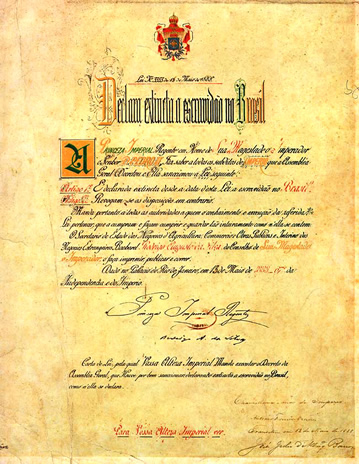 Lei Nº 3353 de 13 de Maio de 1888.
Declara extincta a escravidão no Brasil
A PRINCEZA IMPERIAL Regente em Nome de Sua Magestade o Imperador
o Senhor D. PEDRO II, Faz saber a todos os subditos do IMPERIO que a Assembléa
Geral Decretou e Ella sanccionou a Lei seguinte:
Artigo 1º: É declarada extincta desde a data desta Lei a escravidão no Brasil.
Artigo 2º: Revogam-se as disposições em contrario.
Manda portanto a todas as autoridades a quem o conhecimento e execução da referida
Lei pertencer, que a cumpram e façam cumprir e guardar tão inteiramente como n'ella se contem.
O Secretario de Estado dos Negocios d'Agricultura, Commercio e Obras Publicas e Interino dos
Negocios Estrangeiros, Bacharel Rodrigo Augusto da Silva, do Conselho de Sua Magestade
o Imperador, o faça imprimir, publicar e correr.
Dado no Palacio do Rio de Janeiro, em 13 de Maio de 1888, 67º da
Independencia e do Imperio.
Princeza Imperial Regente
Rodrigo A. da Silva
Carta de Lei, pela qual Vossa Alteza Imperial Manda executar o Decreto da
Assembléa Geral, que Houve por bem sanccionar declarando extincta a escravidão no Brasil,
como n'ella se declara.
Para Vossa Alteza Imperial ver.
Chancellaria-mor do Imperio
13 de Maio de 1888
José Julio de